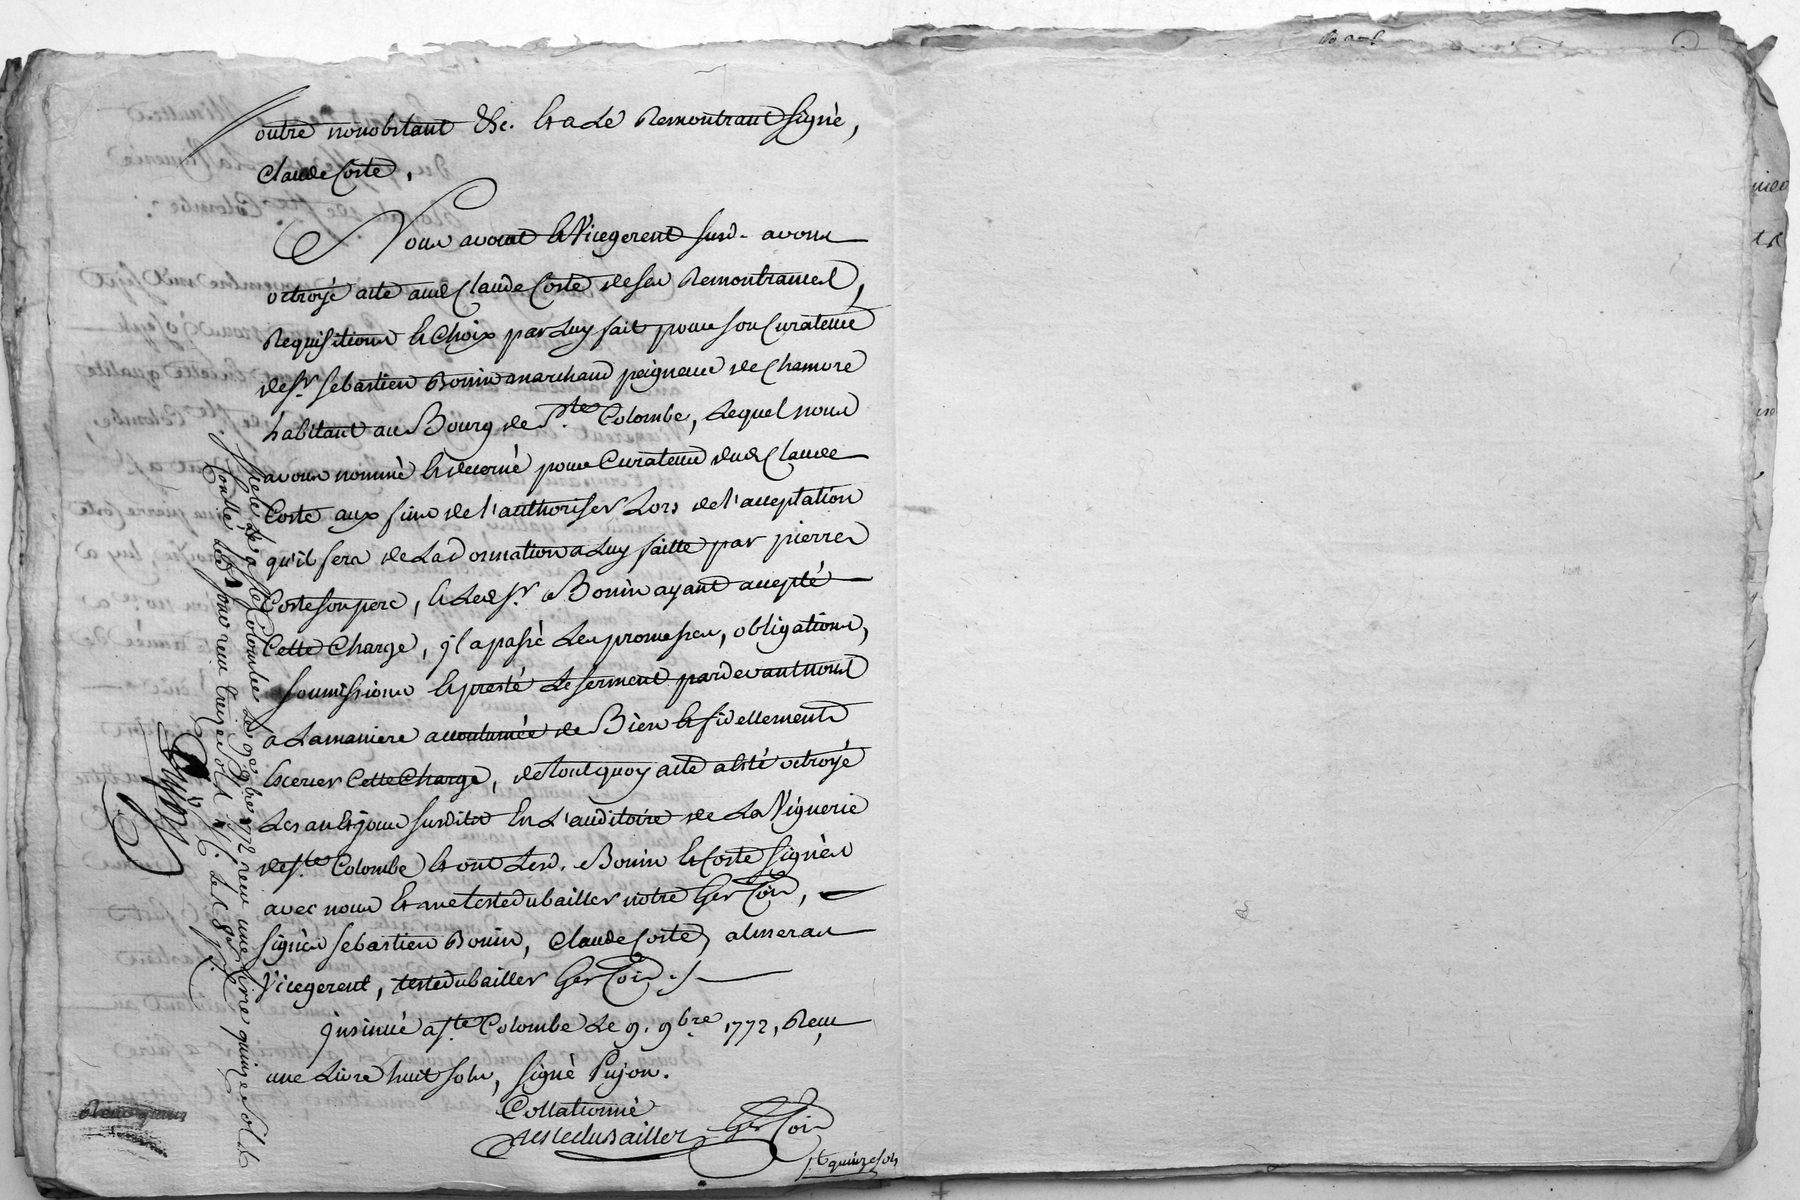 outre nonobstant &c. Et a Le Remontrant signé,
Claude Coste.
Nous avocat Et Vicegerent susd. avons
octroyé acte aud. Claude Coste de ses Remontrances,
Requisitions Et Choix par Luy fait pour son Curateur
de sr. sebastien Bonin marchand peigneur de Chamvre
habitant au Bourg de Ste. Colombe, Lequel nous
avons nommé Et decerné pour Curateur dud. Claude
Coste aux fins de l'authoriser Lors de l'acceptation
qu'il fera de La donnation a Luy faitte par pierre
Coste son pere, Et Led. sr. Bonin ayant accepté
Cette Charge, jl a passé Les promesses, obligations,
soumissions Et presté Le serment pardevant nous
a La maniere accoutumée de Bien Et fidellement
Exercer Cette Charge, de tout quoy acte a Eté octroyé
Les an Et jour susdits En L'auditoire de La Viguerie
de ste. Colombe Et ont Lesd. Bonin Et Coste signés
avec nous Et me testedubailler notre Ger Coin,
signés sebastien Bonin, Claude Coste, almeras
Vicegerent, testedubailler Ger Coin ./.
jnsinué a ste. Colombe Le 9. 9bre 1772, Reçu
une Livre huit sols, signé Pujon.
Collationné
testedubailler Ger Coin
st quinze sols
Scelé a ste Colombe Le 9 9bre 1772 reçu une livre quinze sols
Pujon